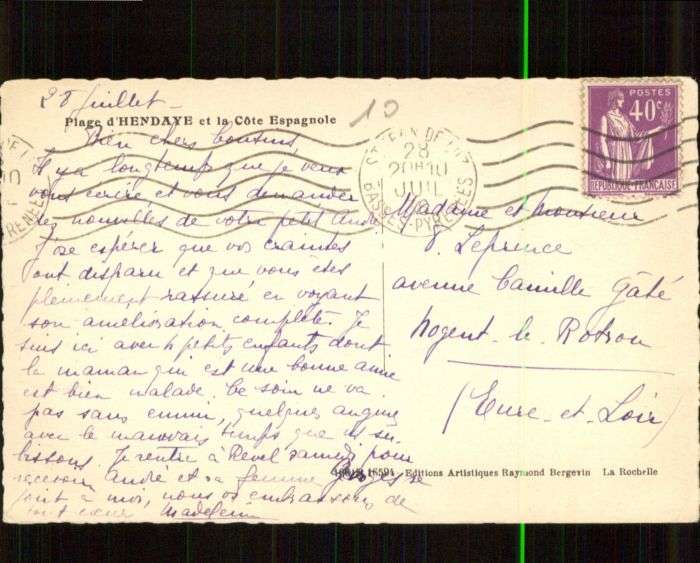 28 juillet
Plage d'HENDAYE et la Côte Espagnole
Bien chers cousins,
Il y a longtemps que je veux
vous écrire et vous demander
des nouvelles de votre petit André
J'ose espérer que vos craintes
ont disparu et que vous êtes
pleinement rassuré en voyant
son amélioration complète. Je
suis ici avec petits enfants dont
la maman qui est une bonne amie
est bien malade. Ce soir ne va
pas sans ennui, quelques angines
avec le mauvais temps que
Je rentre à samedi pour
recevoir André et sa femme
joint à moi, nous vous embrassons de
tout coeur Madeleine
10
28
20H10
JUIL
BASSES-PYRENEES
POSTES
40c
REPUBLIQUE FRANÇAISE
Madame et Monsieur
Leprince
avenue Camille Gâté
Nogent-le-Rotrou
(Eure-et-Loir)
16594 - Editions Artistiques Raymond Bergevin La Rochelle